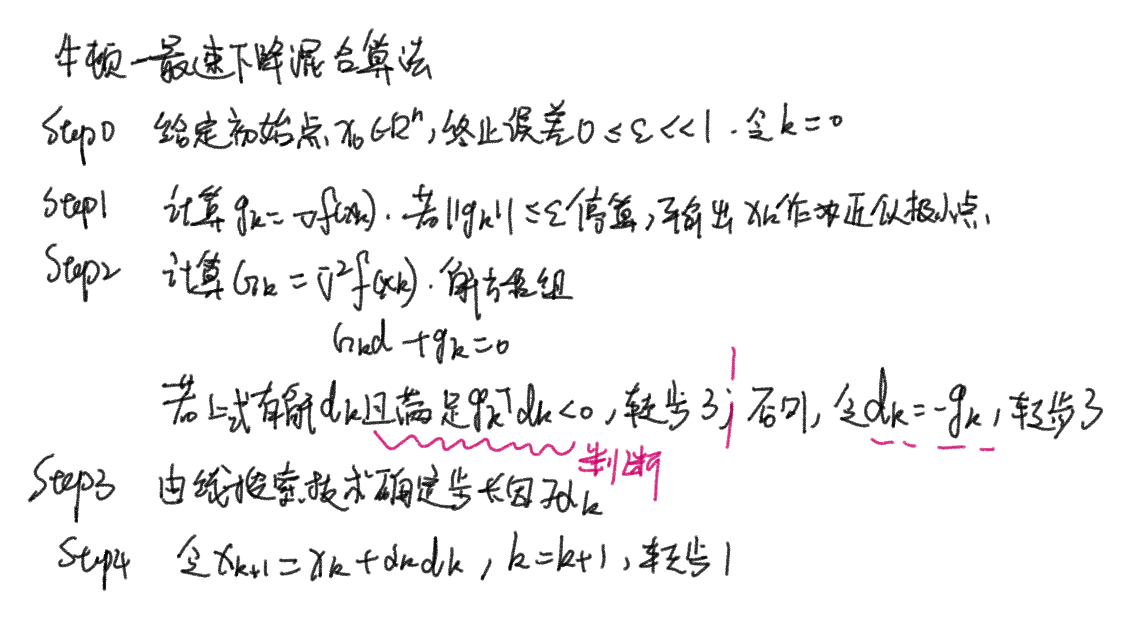 牛顿—最速下降混合算法
Step0 给定初始点 x₀∈Rⁿ, 终止误差 0≤ε<<1. 令 k=0
Step1 计算 gₖ=∇f(xₖ). 若||gₖ||≤ε停算, 输出 xₖ作为近似极小点.
Step2 计算 Gₖ=∇²f(xₖ). 解方程组
Gₖd+gₖ=0
若上式有解 dₖ且满足 gₖᵀdₖ<0, 转步3; 否则, 令dₖ=-gₖ, 转步3
判断
Step3 由线搜索技术确定步长因子αₖ
Step4 令 xₖ₊₁=xₖ+αₖdₖ, k=k+1, 转步1